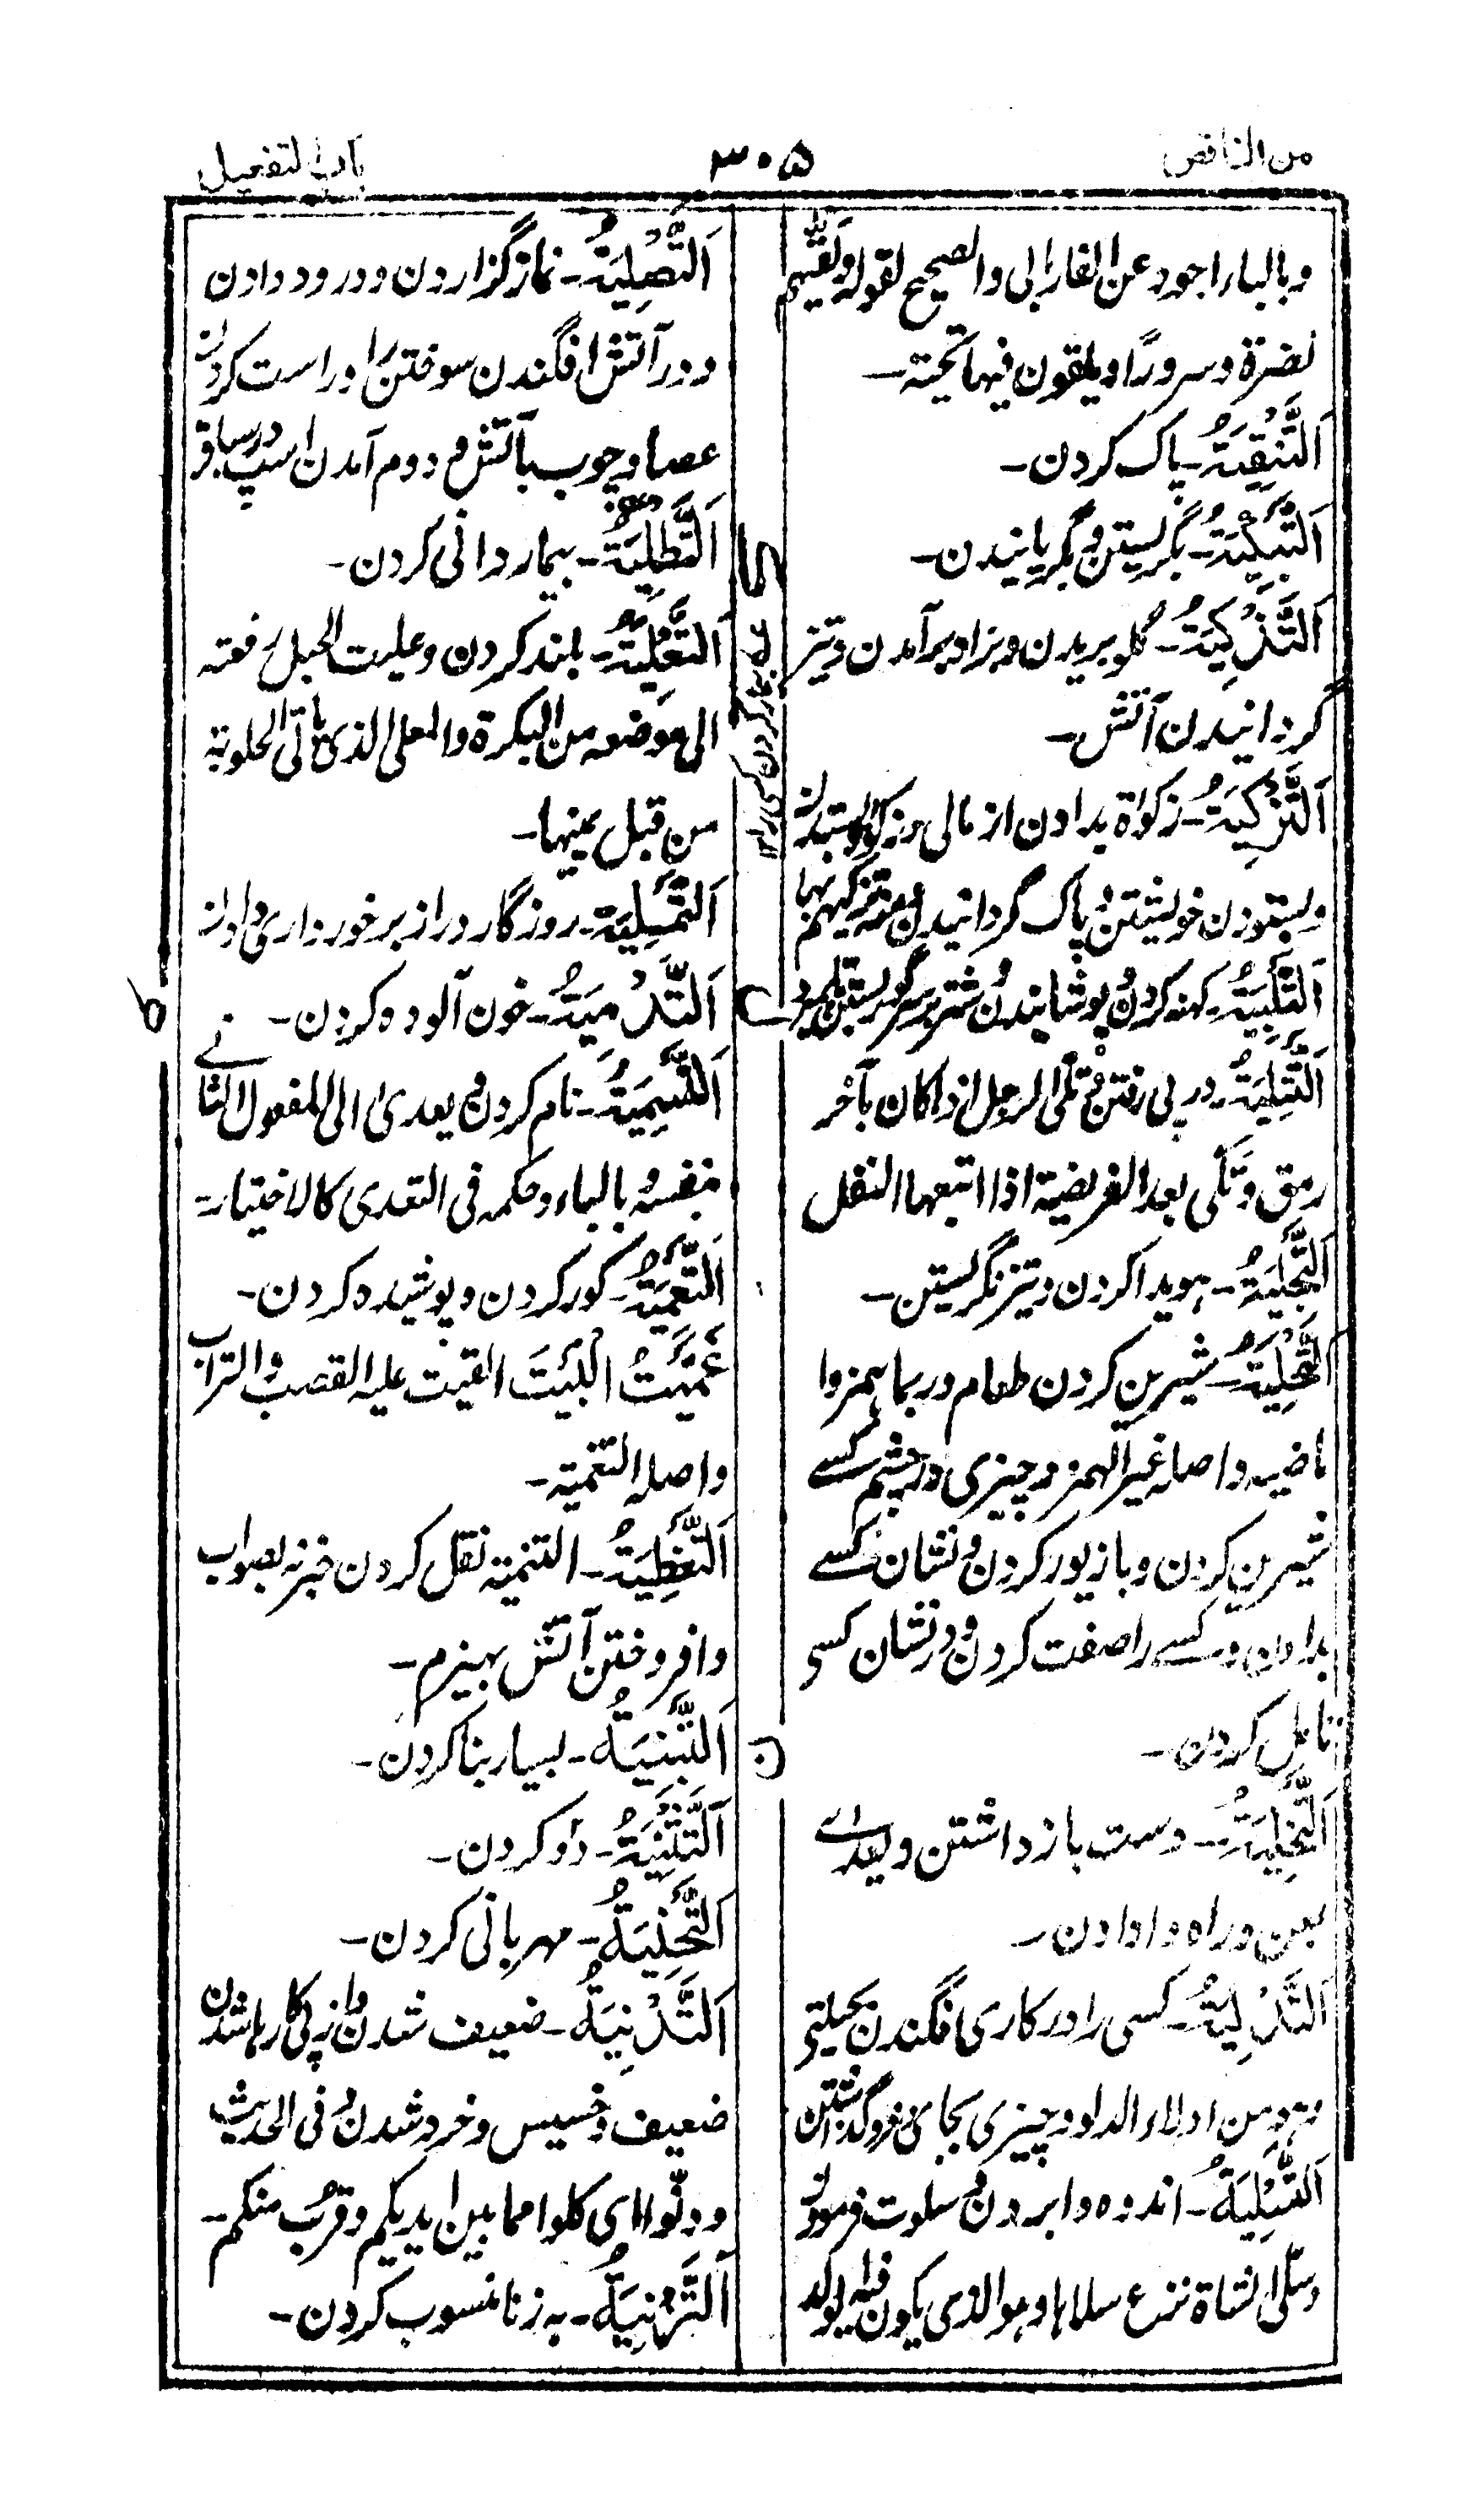 من الناقص
۳۰۵
باب التفعیل
وبالباء اجود عن الفارابی والصحیح لقوله ولقّیهم
نضرة وسرورًا و یلقون فیها تحیته۔
اَلتَّنْقِیَةُ۔ پاک کردن۔
اَلتَّبْکِیَةُ۔ بگریستن و بگریانیدن۔
اَلتَّذْکِیَةُ۔ گلو بریدن و بزاد برآمدن و تیز
گردانیدن آتش۔
اَلتَّزْکِیَةُ۔ زکوٰة بدادن از مالی و زکوٰة بستدن
و بستودن خویشتن و پاک گردانیدن و منه تزکیهم بها
اَلتَّبْلِیَةُ۔ کهنه کردن و پوشانیدن و شتر بر سر گور بستن
اَلتَّتْلِیَةُ۔ در پی رفتن و تلّی الرجل اذا کان بآخر
رمق و تلّی بعد الفریضة اذا اتبعها النفل
اَلتَّجْلِیَةُ۔ هویدا کردن و تیز نگریستن۔
اَلتَّحْلِیَةُ۔ شیرین کردن طعام و ربما همزوا
ماضیه واصله غیر الهمز و چیزی در چشم کسے
شیرین کردن و با زیور کردن و نشان کسے
بدادن و کسے را صفت کردن و در نشان کسی
تامل کردن۔
اَلتَّخْلِیَةُ۔ دست بازداشتن و یعدے
بعن و راه وادادن۔
اَلتَّدْلِیَةُ۔ کسی را در کاری افگندن بحیلتی
و هو من ادلاء الدلو و چیزی بجائی فروگذاشتن
اَلتَّسْلِیَةُ۔ اندوه وابردن و سلوت فرمودن
وسلّی الشاة نزع سلاها و هو الذی یکون فیه الولد
اَلتَّصْلِیَةُ۔ نماز گزاردن و درود دادن
و در آتش افگندن سوختن را و راست کردن
عصا و چوب بآتش و دوم آمدن اسپ در سباق
اَلتَّطْلِیَةُ۔ بیمار دانی کردن۔
اَلتَّعْلِیَةُ۔ بلند کردن و علیت الحبل رفعته
الی موضعه من البکرة والمعلی الذی یأتی الحلوبة
من قبل یمینها۔
اَلتَّمْلِیَة۔ روزگار دراز برخورداری دادن
اَلتَّدْمِیَةُ۔ خون آلوده کردن۔
اَلتَّسْمِیَةُ۔ نام کردن و یعدی الی المفعول الثانے
بنفسه و بالباء و حکمه فی التعدی کالاختیار۔
اَلتَّعْمِیَةُ۔ کور کردن و پوشیده کردن۔
غَمَّیْتُ الْبَیْتَ القیت علیه القصب والتراب
واصله التغمیة۔
اَلتَّغْطِیَةُ۔ التنمیة نقل کردن خبر نه بصواب
وافروختن آتش بهیزم۔
اَلتَّبْنِیَةُ۔ بسیار بنا کردن۔
اَلتَّثْنِیَةُ۔ دو کردن۔
اَلتَّحْنِیَةُ۔ مهربانی کردن۔
اَلتَّدْنِیَةُ۔ ضعیف شدن و از پی کارها شدن
ضعیف و خسیس و خرد شدن و فی الحدیث
و دنّوا ای کلوا مما بین ایدیکم و قرب منکم۔
اَلتَّزْنِیَةُ۔ به زنا منسوب کردن۔